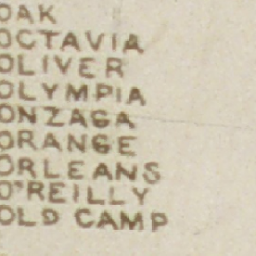 OAK
OCTAVIA
OLIVER
OLYMPIA
ONZAGA
ORANGE
ORLEANS
O'REILLY
OLD CAMP